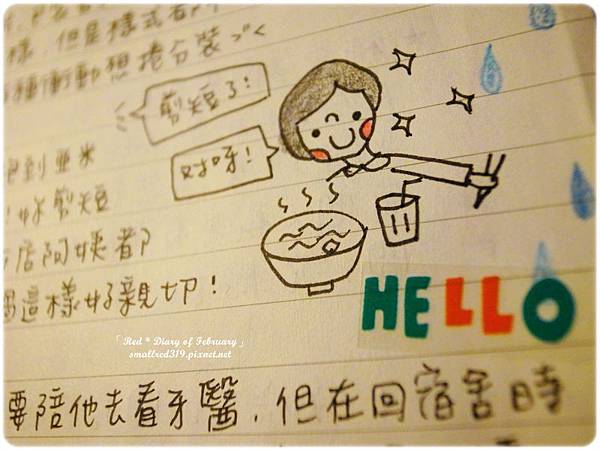 樣，但是樣式看
種衝動想捲分裝
剪短了！
對呀！
到亞米
妹剪短
店阿姨都
這樣好親切！
HELLO
「Red * Diary of February」
smallred319.pixnet.net
要陪他去看牙醫，但在回宿舍時